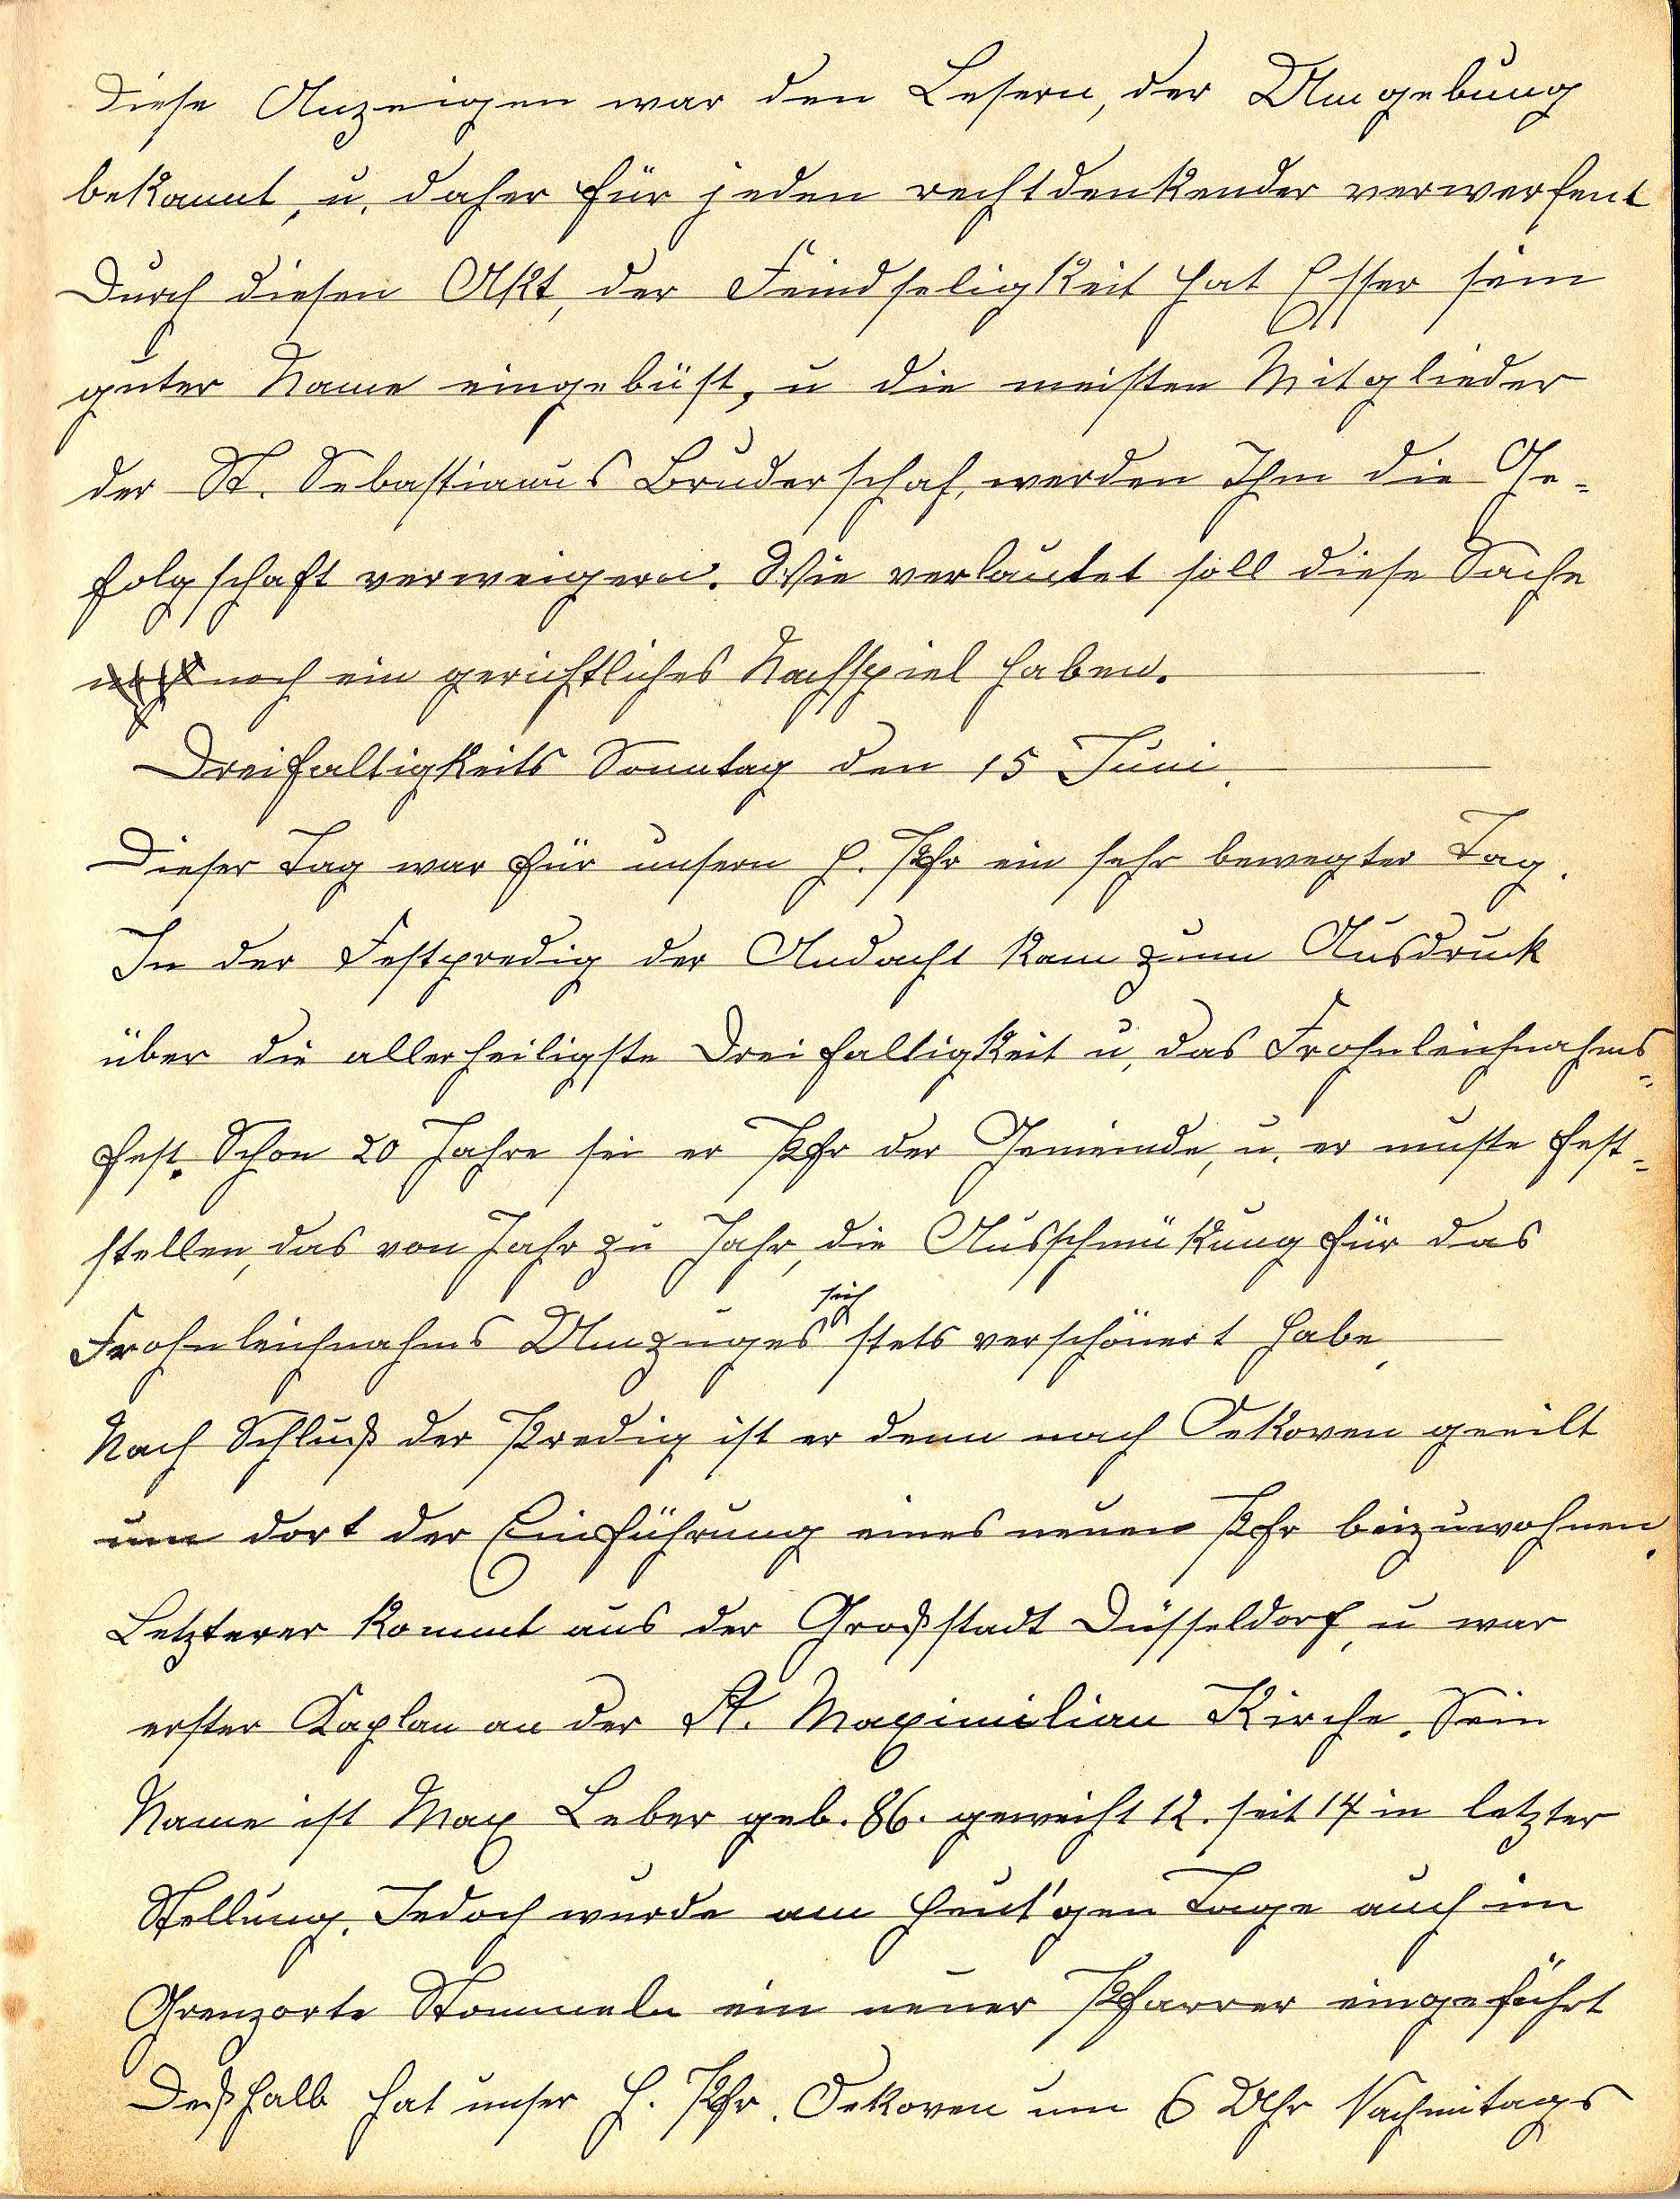 Diese Anzeigen war den Lesern, der Umgebung
bekannt, u. daher für jeden rechtdenkender verwerfent
Durch diesen Akt, der Feindseligkeit hat Esser sein
guter Name eingebüst, u die meisten Mitglieder
der St. Sebastianus Bruderschaf, werden Ihm die Ge-
folgschaft verweigern. Wie verlautet soll diese Sache
noch ein gerichtliches Nachspiel haben.
Dreifaltigkeits Sonntag den 15 Juni.
Dieser Tag war für unsern H. Pfr ein sehr bewegter Tag.
In der Festpredig der Andacht kam zum Ausdruck
über die allerheiligste Dreifaltigkeit u, das Frohnleichnahms-
fest. Schon 20 Jahre sei er Pfr der Gemeinde, u. er muste fest-
stellen, das von Jahr zu Jahr, die Ausschmükung für das
Frohnleichnahms Umzuges sich stets verschönert habe.
Nach Schluß der Predig ist er denn nach Oekoven geeilt
um dort der Einführung eines neuen Pfr beizuwohnen.
Letzterer kommt aus der Großstadt Düsseldorf, u war
erster Kaplan an der St. Maximilian Kirche. Sein
Name ist Max Leber geb. 86. geweiht 12. seit 14 in letzter
Stellung. Jedoch wurde am heut'gen Tage auch im
Grenzorte Stommeln ein neuer Pfarrer eingeführt
Deßhalb hat unser H. Pfr. Oekoven um 6 Uhr Nachmitags